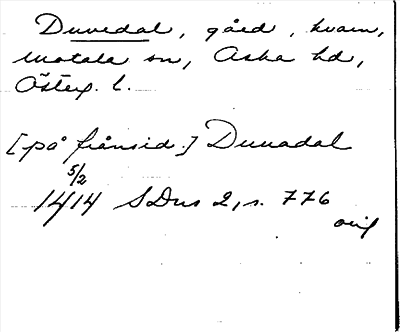 Duvedal, gård, kvarn,
Motala sn, Aska hd,
Österg. l.
[på frånsid.] Duuadal
5/2
1414 SDns 2, s. 776
orig